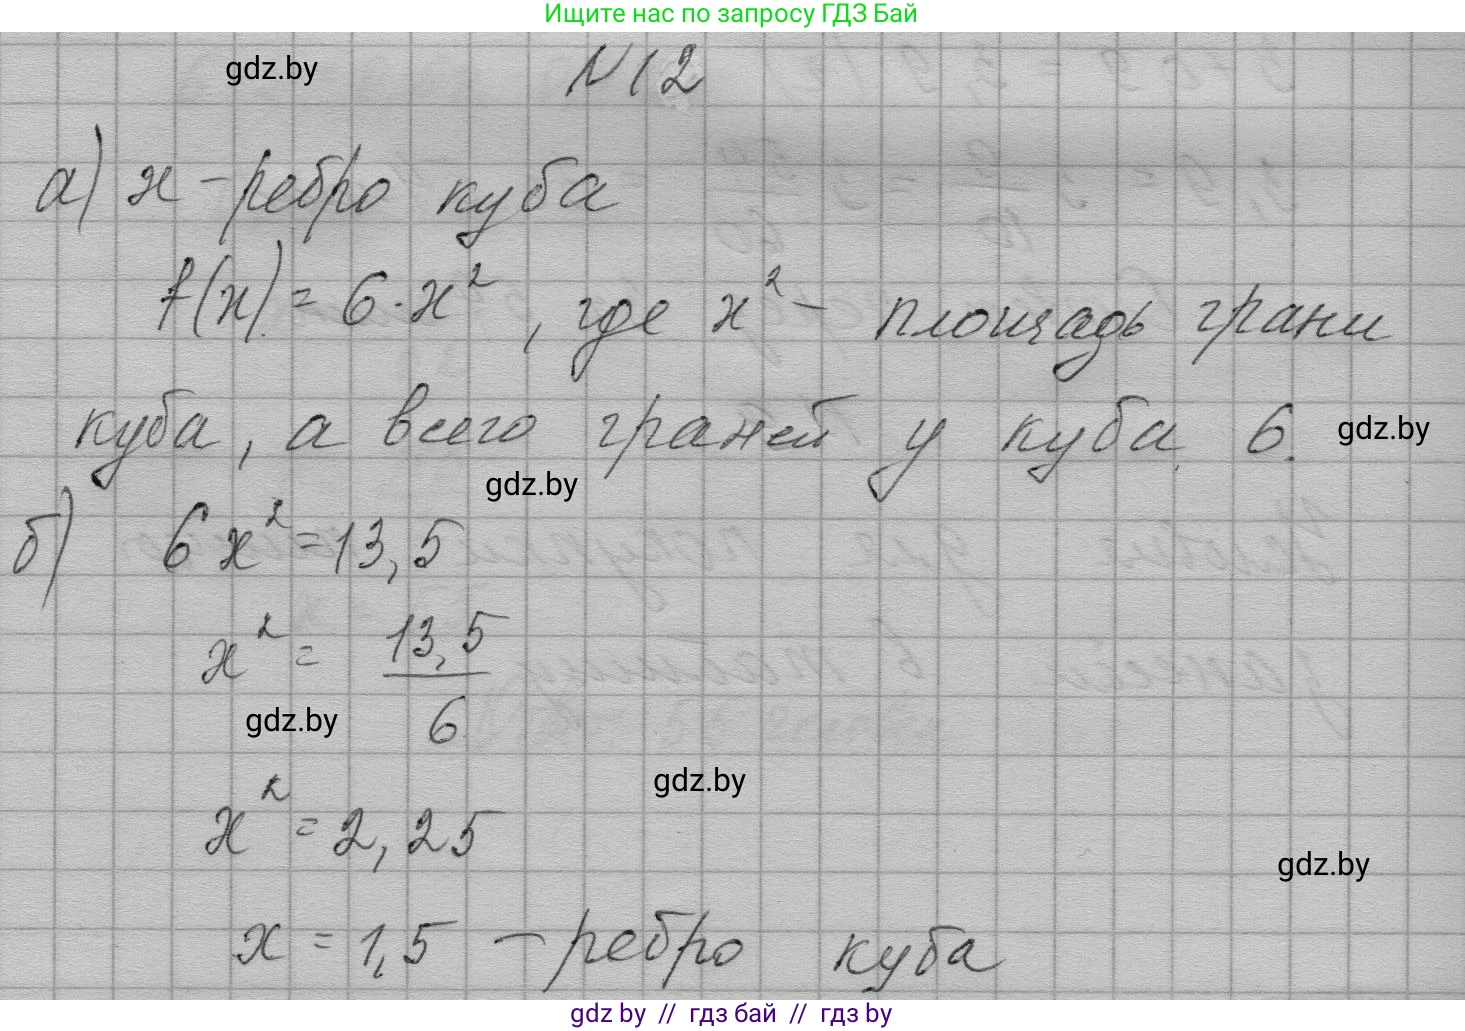 Ищите нас по запросу ГДЗ Бай
gdz.by
N12
а) x - ребро куба
f(x) = 6·x², где x² - площадь грани
куба, а всего граней у куба 6.
gdz.by
gdz.by
б) 6x² = 13,5
x² = 13,5 / 6
gdz.by
gdz.by
x² = 2,25
gdz.by
x = 1,5 - ребро куба
gdz by // гдз бай // гдз by